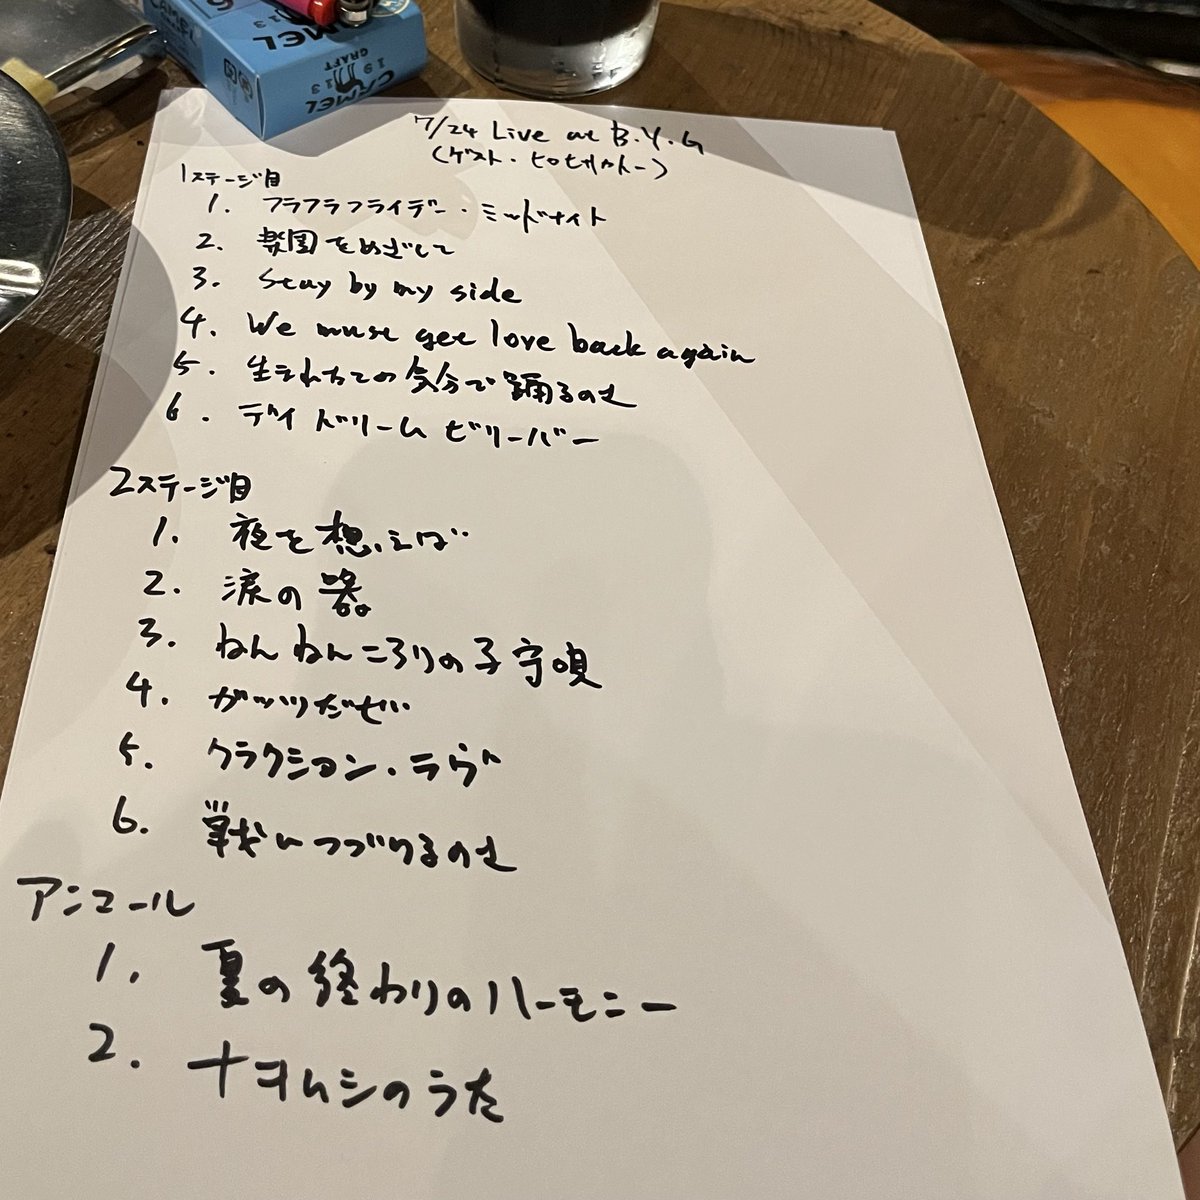 CAMEL
CRAFT
1913
CAMEL
7/24 Live at B.Y.G
(ゲスト・ヒロヒサカトー)
1ステージ目
1. フラフラフライデー・ミッドナイト
2. 楽園をめざして
3. Stay by my side
4. We must get love back again
5. 生まれたての気分で踊るのさ
6. デイドリームビリーバー
2ステージ目
1. 夜を想えば
2. 涙の器
3. ねんねんころりの子守唄
4. ガッツだぜ!!
5. クラクション・ラヴ
6. 戦いつづけるのさ
アンコール
1. 夏の終わりのハーモニー
2. ナヨムシのうた